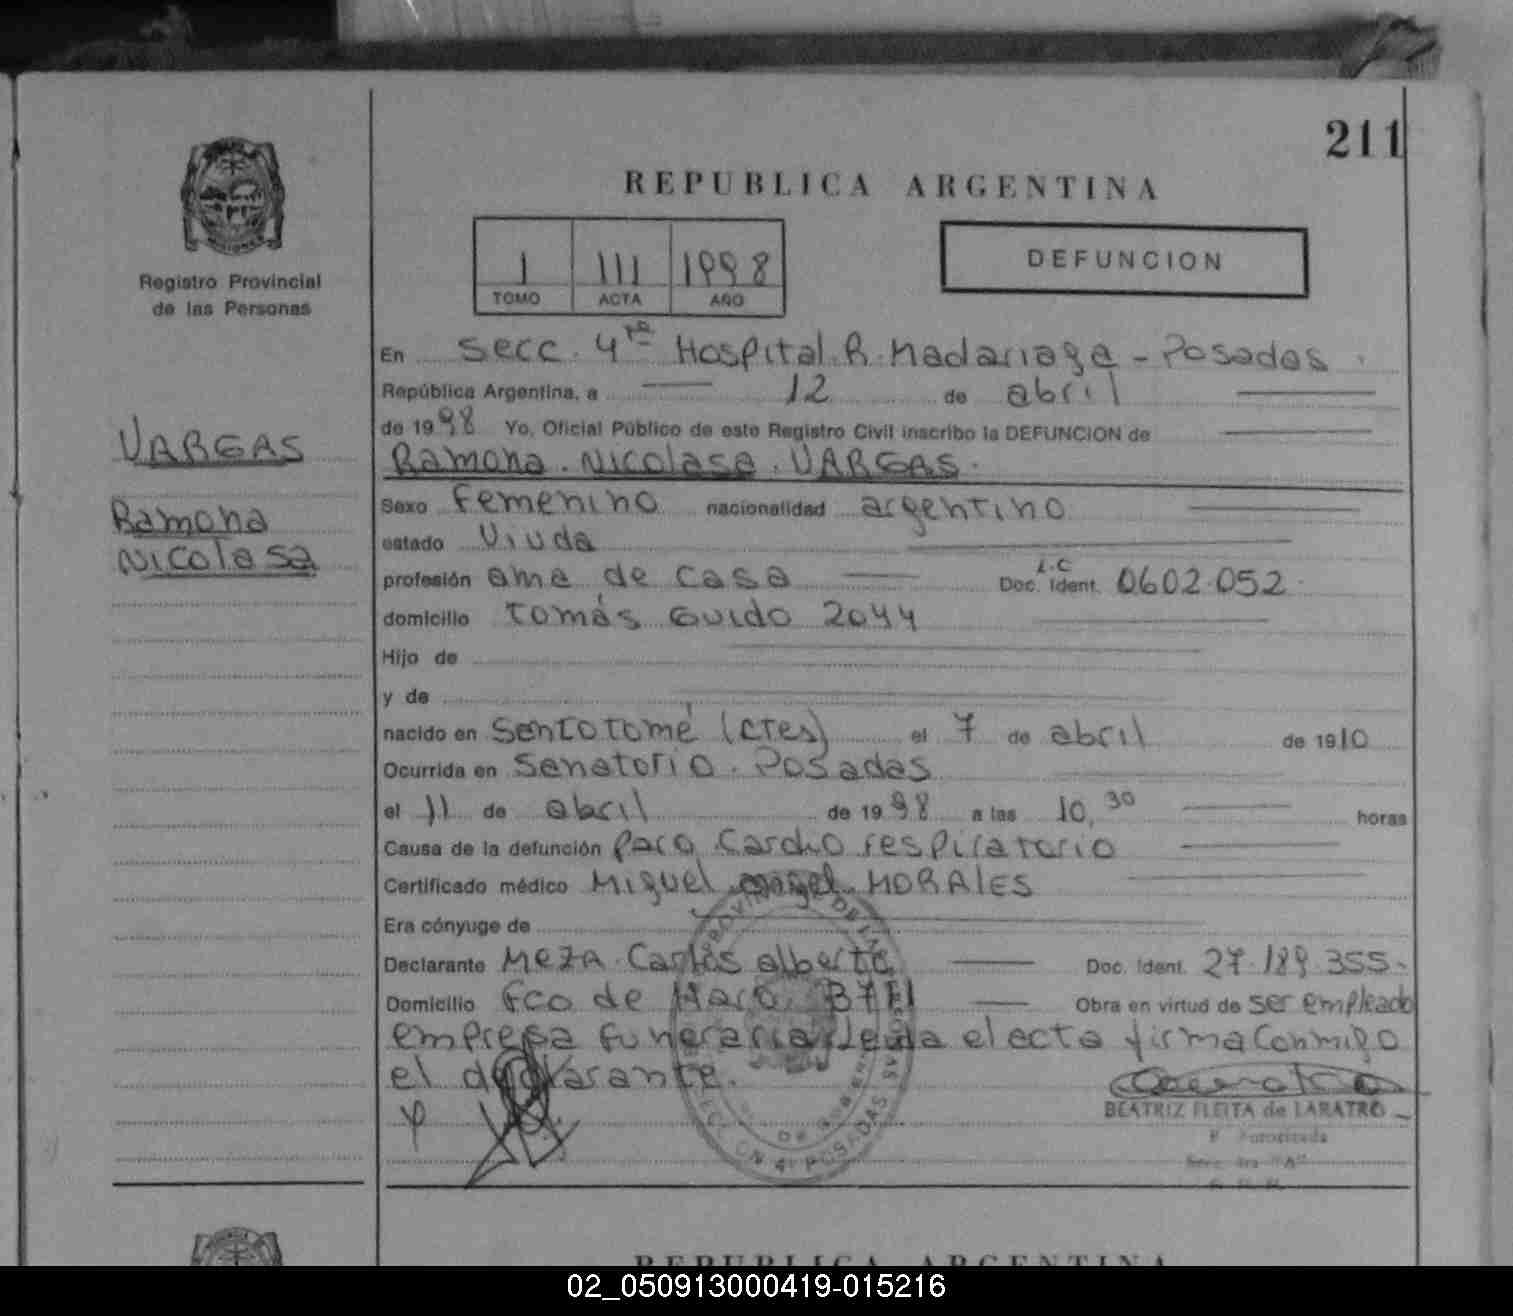 211
REPUBLICA ARGENTINA
Registro Provincial
de las Personas
1 111 1998
TOMO ACTA AÑO
DEFUNCION
En Secc. 4ta Hospital R. Madariaga - Posadas.
República Argentina, a 12 de abril
de 1998 Yo, Oficial Público de este Registro Civil inscribo la DEFUNCION de
Ramona Nicolasa VARGAS.
VARGAS
Ramona
Nicolasa
Sexo Femenino nacionalidad argentino
estado Viuda
profesión ama de casa L.C Doc. Ident. 0602.052.
domicilio Tomás Guido 2044
Hijo de
y de
nacido en Santotomé (Ctes) el 7 de abril de 1910
Ocurrida en Sanatorio Posadas
el 11 de abril de 1998 a las 10,30 horas
Causa de la defunción Paro Cardio respiratorio
Certificado médico Miguel angel MORALES
Era cónyuge de
Declarante MEZA Carlos alberto Doc. Ident. 27.189.355-
Domicilio Fco de Haro Obra en virtud de ser empleado
empresa funeraria Leida el acta firma Conmigo
el declarante.
BEATRIZ FLEITA de LARATRO
PROVINCIA DE
SECCION 4ª POSADAS
REPUBLICA ARGENTINA
02_050913000419-015216